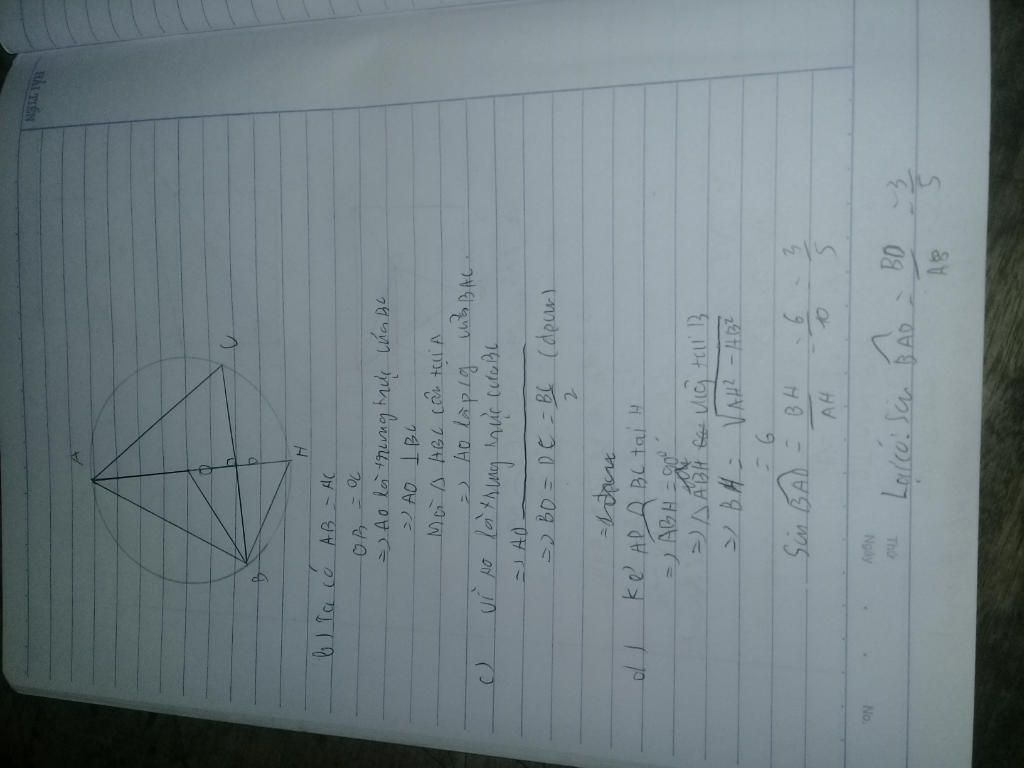 HẢI TIẾN
A
O
B
D
C
H
b) Ta có AB = AC
OB = OC
=> AO là trung trực của BC
=> AO ⊥ BC
Mà Δ ABC cân tại A
=> AO là p/g của BAC.
c) Vì AO là trung trực của BC
=> AD
=> BD = DC = BC/2 (đpcm)
=> đpcm
d) Kẻ AD ∩ BC tại H
=> ABH = 90°
=> Δ ABH vuông tại B
=> BH = √AH² - AB²
= 6
Sin BAD = BH/AH = 6/10 = 3/5
Thứ
Ngày
No.
Lại có: Sin BAD = BD/AB = 3/5